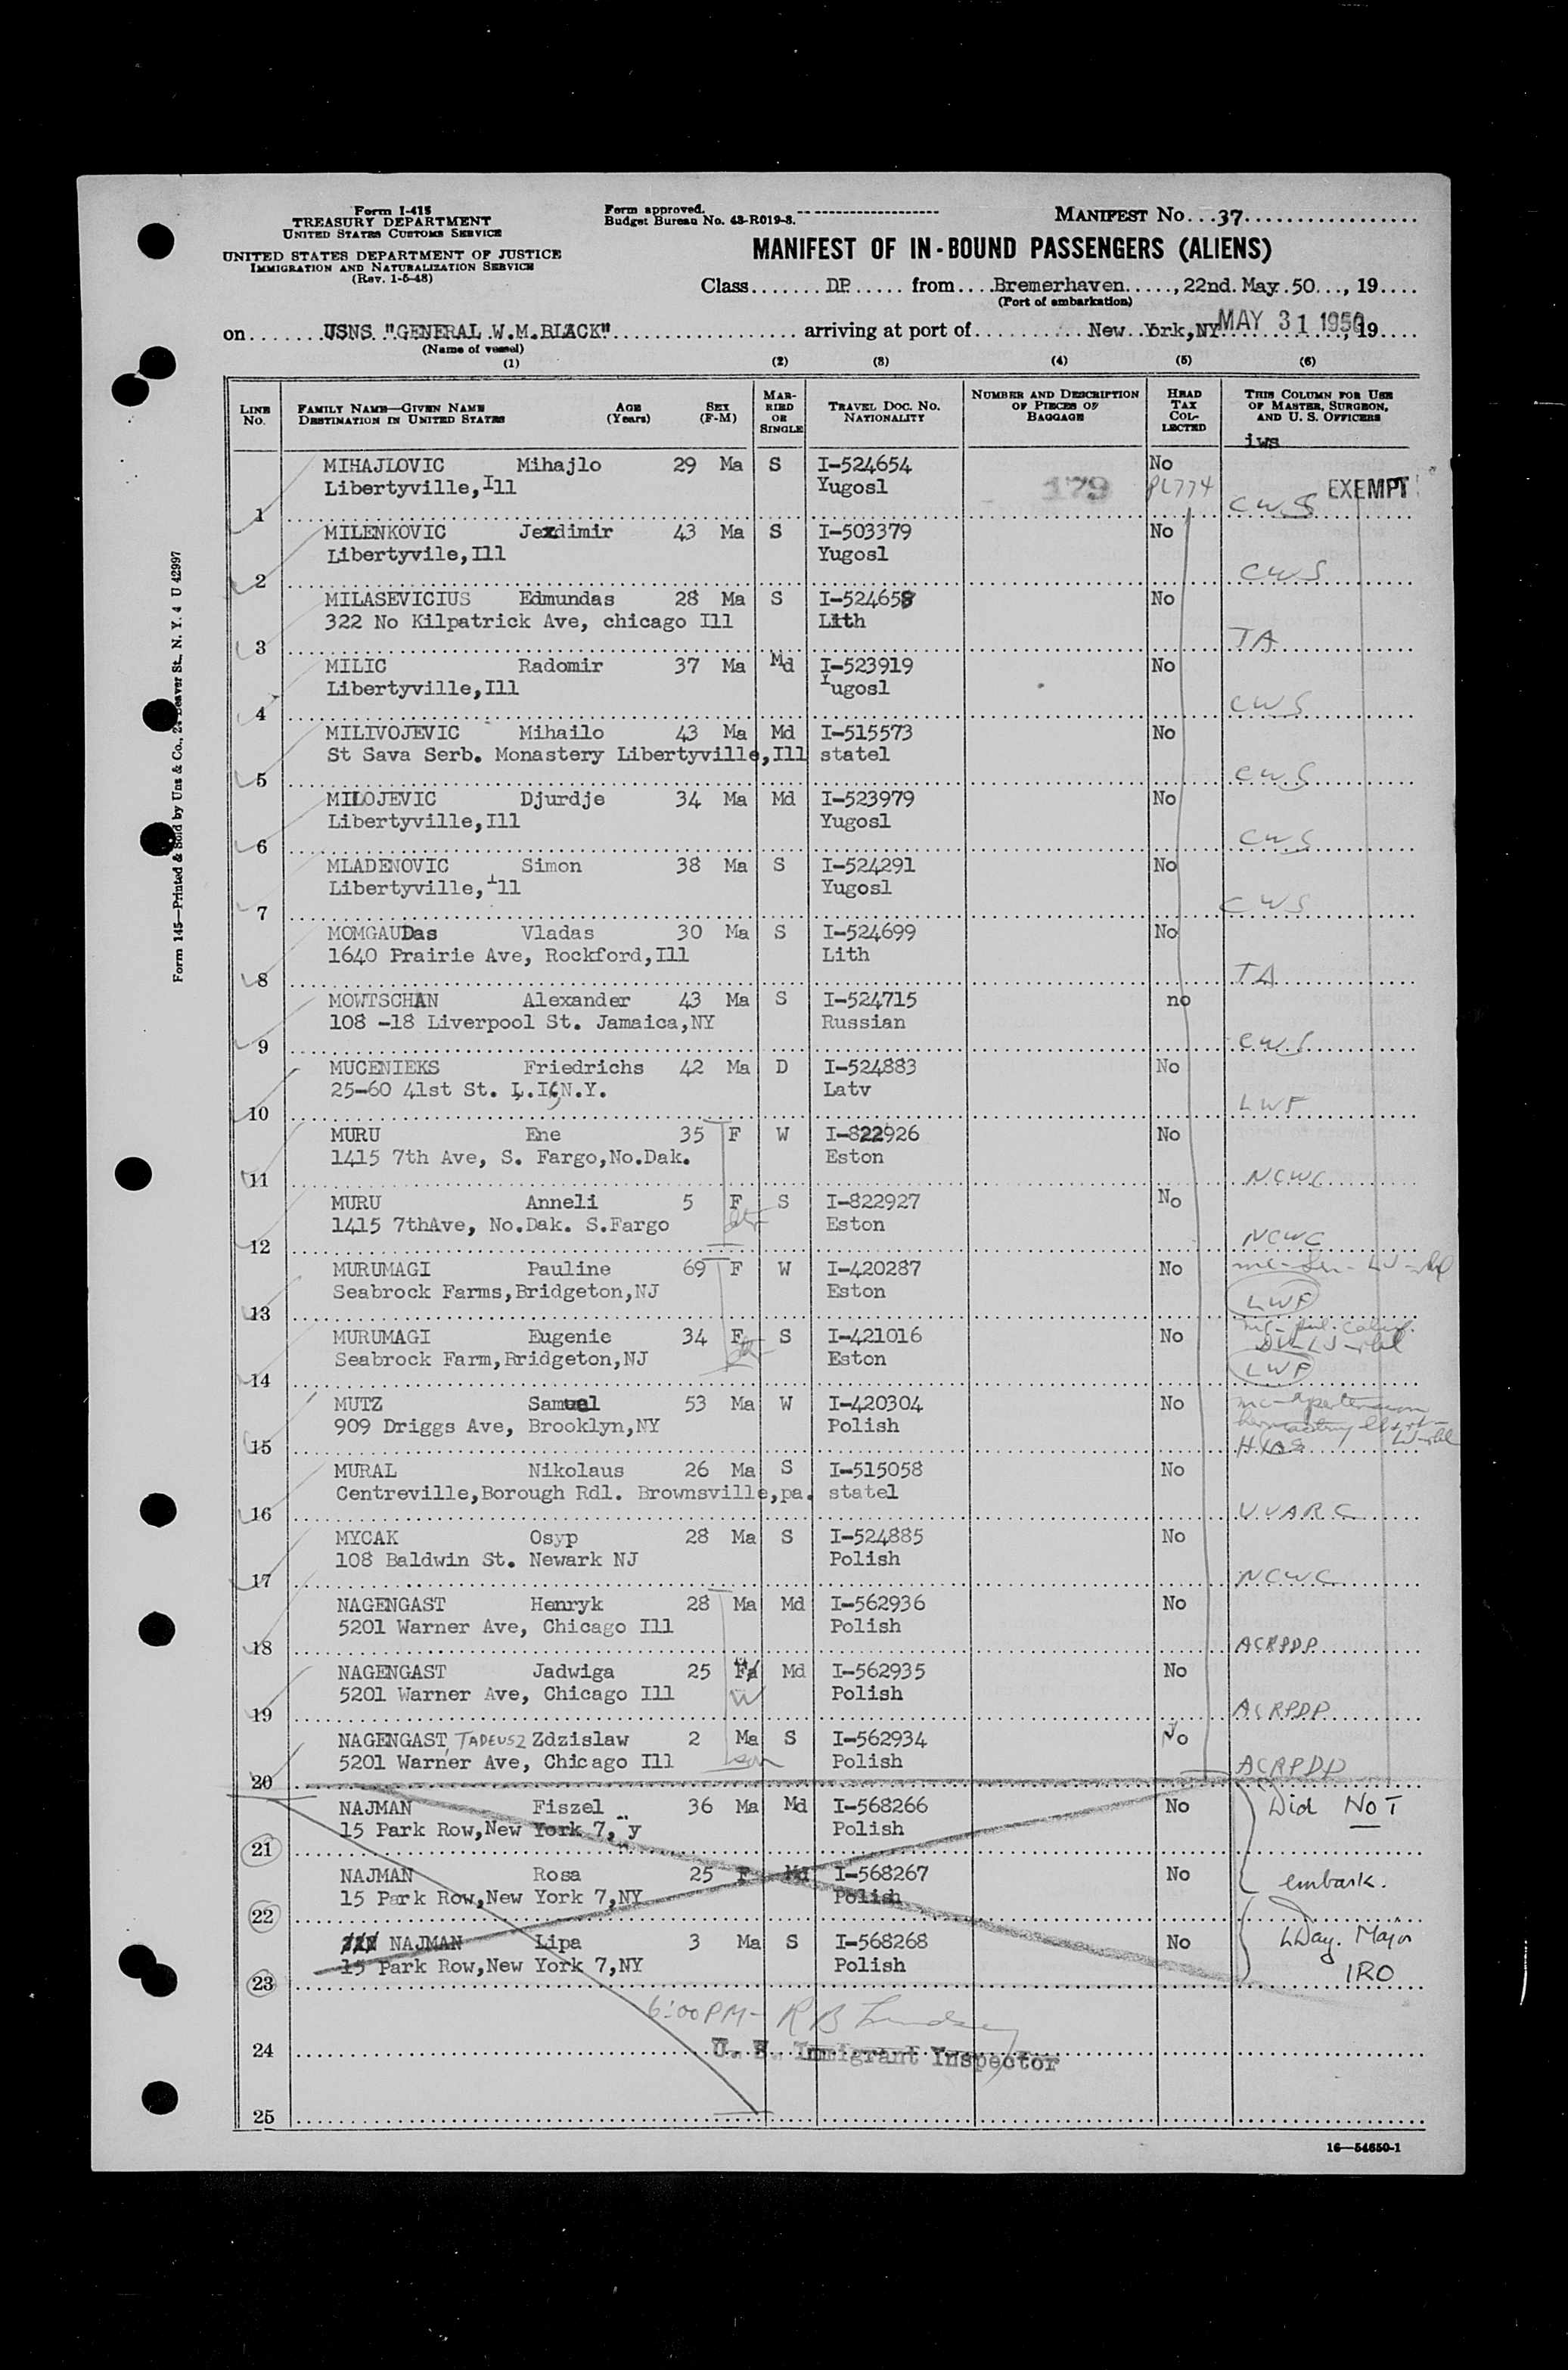 Form I-415
TREASURY DEPARTMENT
UNITED STATES CUSTOMS SERVICE
UNITED STATES DEPARTMENT OF JUSTICE
IMMIGRATION AND NATURALIZATION SERVICE
(Rev. 1-5-48)
Form approved.
Budget Bureau No. 43-R019-3.
MANIFEST No...37
MANIFEST OF IN-BOUND PASSENGERS (ALIENS)
Class DP from Bremerhaven, 22nd. May. 50, 19
(Port of embarkation)
on USNS "GENERAL W.M.BLACK" arriving at port of New York, NY MAY 31 1950, 19
(Name of vessel)
(1) (2) (3) (4) (5) (6)
LINE No. FAMILY NAME—GIVEN NAME DESTINATION IN UNITED STATES AGE (Years) SEX (F-M) MARRIED OR SINGLE TRAVEL DOC. NO. NATIONALITY NUMBER AND DESCRIPTION OF PIECES OF BAGGAGE HEAD TAX COLLECTED THIS COLUMN FOR USE OF MASTER, SURGEON, AND U. S. OFFICERS
iws
MIHAJLOVIC Mihajlo 29 Ma S I-524654 No
Libertyville, Ill Yugosl 179 PL774 EXEMPT
1 CWS
MILENKOVIC Jezdimir 43 Ma S I-503379 No
Libertyvile, Ill Yugosl
2 CWS
MILASEVICIUS Edmundas 28 Ma S I-524658 No
322 No Kilpatrick Ave, chicago Ill Lith
3 TA
MILIC Radomir 37 Ma Md I-523919 No
Libertyville, Ill Yugosl
4 CWS
MILIVOJEVIC Mihailo 43 Ma Md I-515573 No
St Sava Serb. Monastery Libertyville, Ill statel
5 CWS
MILOJEVIC Djurdje 34 Ma Md I-523979 No
Libertyville, Ill Yugosl
6 CWS
MLADENOVIC Simon 38 Ma S I-524291 No
Libertyville, Ill Yugosl
7 CWS
MOMGAUDas Vladas 30 Ma S I-524699 No
1640 Prairie Ave, Rockford, Ill Lith
8 TA
MOWTSCHAN Alexander 43 Ma S I-524715 no
108 -18 Liverpool St. Jamaica, NY Russian
9 CWS
MUCENIEKS Friedrichs 42 Ma D I-524883 No
25-60 41st St. L.I.C, N.Y. Latv
10 LWF
MURU Ene 35 F W I-822926 No
1415 7th Ave, S. Fargo, No.Dak. Eston
11 NCWC
MURU Anneli 5 F S I-822927 No
1415 7thAve, No.Dak. S.Fargo Eston
12 NCWC
MURUMAGI Pauline 69 F W I-420287 No
Seabrock Farms, Bridgeton, NJ Eston
13 LWF
MURUMAGI Eugenie 34 F S I-421016 No
Seabrock Farm, Bridgeton, NJ Eston
14 LWF
MUTZ Samuel 53 Ma W I-420304 No
909 Driggs Ave, Brooklyn, NY Polish
15 HIAS
MURAL Nikolaus 26 Ma S I-515058 No
Centreville, Borough Rdl. Brownsville, pa. statel
16 UUARC
MYCAK Osyp 28 Ma S I-524885 No
108 Baldwin St. Newark NJ Polish
17 NCWC
NAGENGAST Henryk 28 Ma Md I-562936 No
5201 Warner Ave, Chicago Ill Polish
18 ACRPDP
NAGENGAST Jadwiga 25 F Md I-562935 No
5201 Warner Ave, Chicago Ill W Polish
19 ACRPDP
NAGENGAST, TADEUSZ Zdzislaw 2 Ma S I-562934 No
5201 Warner Ave, Chicago Ill son Polish
20 ACRPDP
NAJMAN Fiszel 36 Ma Md I-568266 No Did NOT
15 Park Row, New York 7, ny Polish
21
NAJMAN Rosa 25 F Md I-568267 No embark.
15 Park Row, New York 7, NY Polish
22
NAJMAN Lipa 3 Ma S I-568268 No LDay. Major
15 Park Row, New York 7, NY Polish IRO
23
6:00 PM- R B Lindsey
24 U. S. Immigrant Inspector
25
16—54650-1
Form 145—Printed & Sold by Unz & Co., 24 Beaver St., N. Y. 4 U 42997